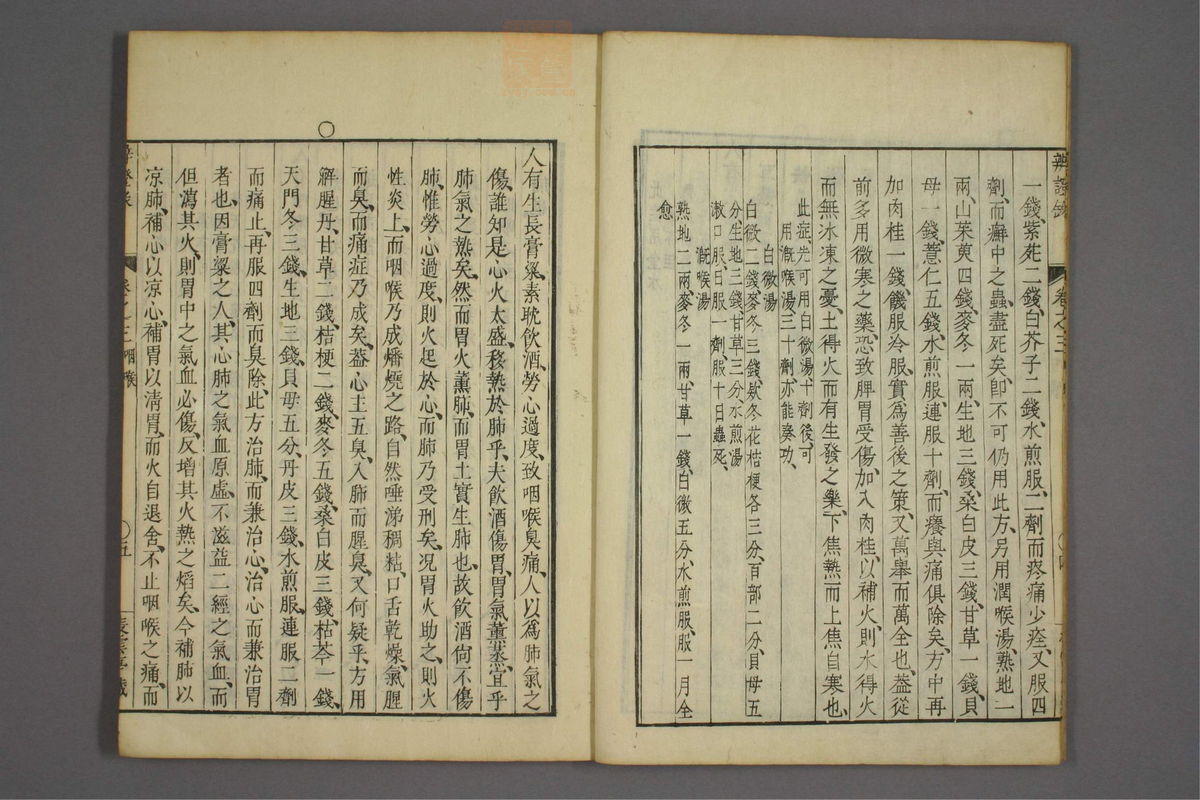 辨證錄 卷之三
一錢紫菀二錢白芥子二錢水煎服二劑而疼痛少痊又服四
劑而癬中之蟲盡死矣卽不可仍用此方另用潤喉湯熟地一
兩山茱萸四錢麥冬一兩生地三錢桑白皮三錢甘草一錢貝
母一錢薏仁五錢水煎服連服十劑而癢與痛俱除矣方中再
加肉桂一錢饑服冷服實爲善後之策又萬舉而萬全也葢從
前多用微寒之藥恐致脾胃受傷加入肉桂以補火則水得火
而無冰凍之憂土得火而有生發之樂下焦熱而上焦自寒也
此症先可用白薇湯十劑後可
用溉喉湯三十劑亦能奏功
白薇湯
白薇二錢麥冬三錢欵冬花桔梗各三分百部二分貝母五
分生地三錢甘草三分水煎湯
漱口服日服一劑服十日蟲死
溉喉湯
熟地二兩麥冬一兩甘草一錢白薇五分水煎服服一月全
愈
○
人有生長膏粱素耽飲酒勞心過度致咽喉臭痛人以爲肺氣之
傷誰知是心火太盛移熱於肺乎夫飲酒傷胃胃氣薰蒸宜乎
肺氣之熱矣然而胃火薰肺而胃土實生肺也故飲酒尙不傷
肺惟勞心過度則火起於心而肺乃受刑矣况胃火助之則火
性炎上而咽喉乃成燔燒之路自然唾涕稠粘口舌乾燥氣腥
而臭而痛症乃成矣葢心主五臭入肺而腥臭又何疑乎方用
解腥丹甘草二錢桔梗二錢麥冬五錢桑白皮三錢枯芩一錢
天門冬三錢生地三錢貝母五分丹皮三錢水煎服連服二劑
而痛止再服四劑而臭除此方治肺而兼治心治心而兼治胃
者也因膏粱之人其心肺之氣血原虛不滋益二經之氣血而
但瀉其火則胃中之氣血必傷反增其火熱之熖矣今補肺以
凉肺補心以凉心補胃以清胃而火自退舍不止咽喉之痛而
卷之三咽喉